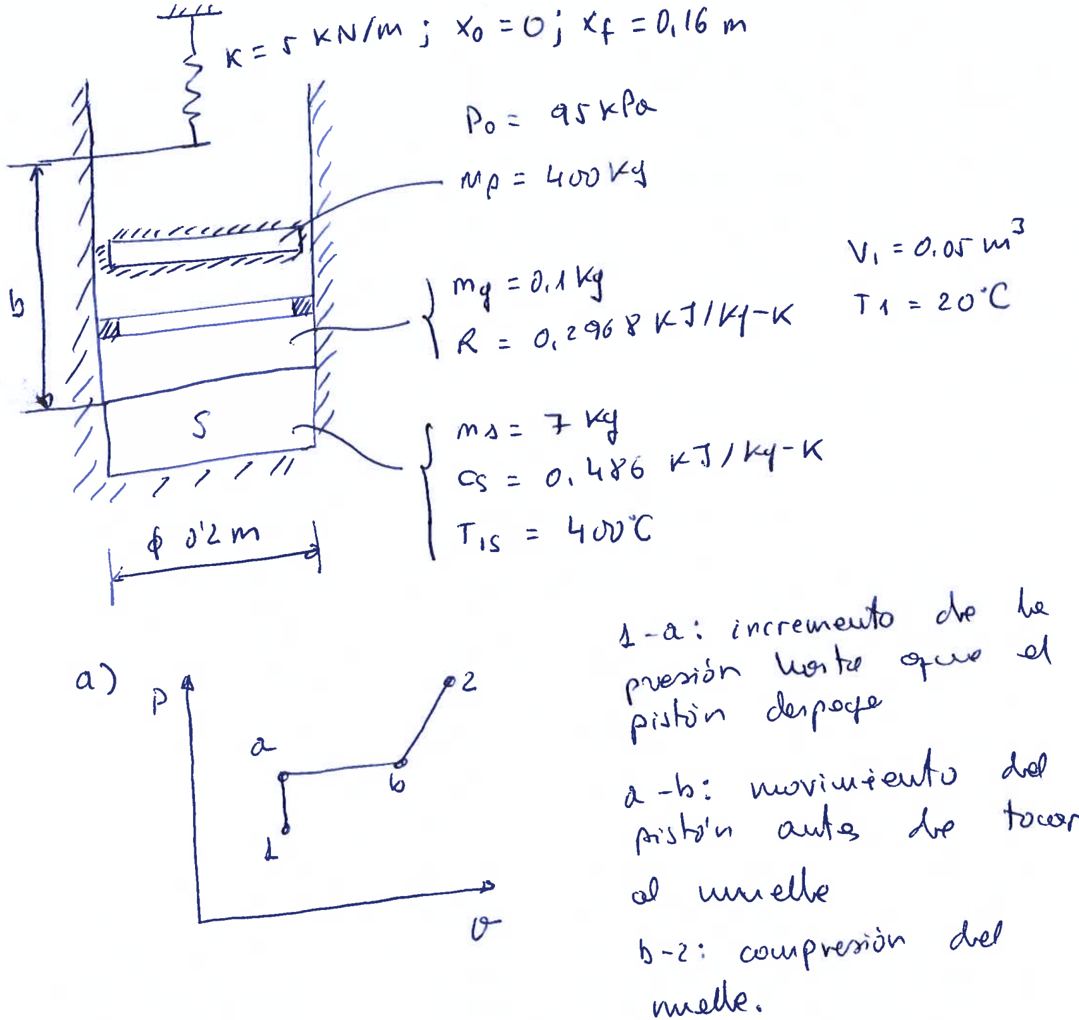 K = 5 KN/m ; x₀ = 0 ; x_f = 0,16 m
P₀ = 95 kPa
mp = 400 Kg
b
V₁ = 0.05 m³
T1 = 20°C
mg = 0,1 Kg
R = 0,2968 KJ/Kg-K
S
ms = 7 Kg
cs = 0.486 KJ/Kg-K
T₁s = 400°C
ϕ 0'2 m
a)
P
2
a
b
1
v
1-a: incremento de la
presión hasta que el
pistón despege
a-b: movimiento del
pistón antes de tocar
al muelle
b-2: compresión del
muelle.